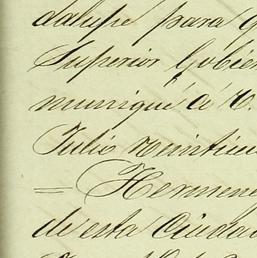 dalupe para q
Superior Gobier
munique á V.
Julio veintiun
= Hermene
de esta Ciudad